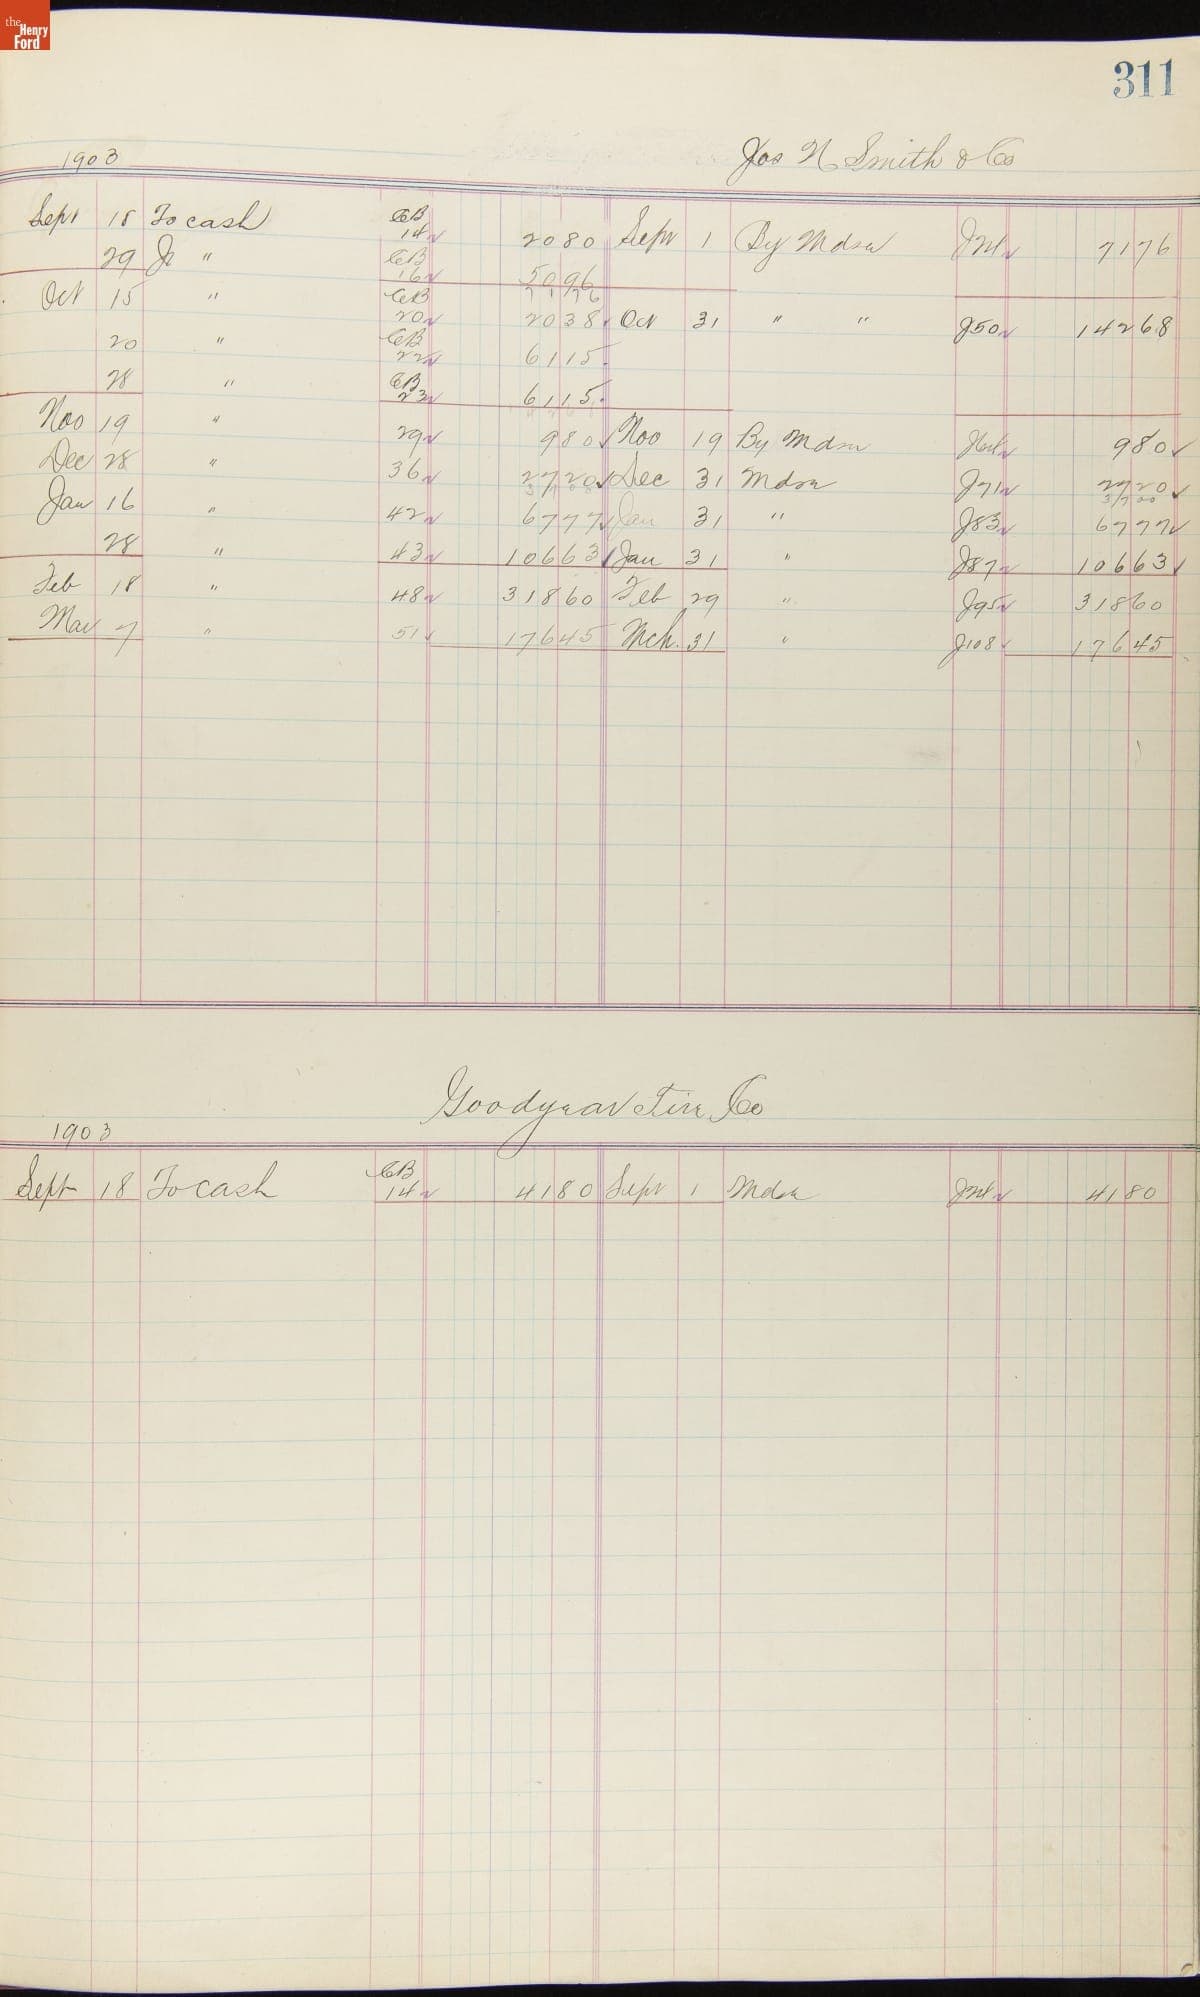 the
Henry
Ford
311
1903
Jos N Smith & Co
Sept 18 To cash CB 14 2080 Sept 1 By Mdse Jnl 7176
29 " CB 16 5096
7176
Oct 15 " CB 20 2038 Oct 31 " " J50 14268
20 " CB 22 6115
28 " CB 23 6115
Nov 19 " 29 980 Nov 19 By Mdse 980
Dec 28 " 36 2720 Dec 31 Mdse J71 2720
3700 3700
Jan 16 " 42 6777 Jan 31 " J83 6777
28 " 43 10663 Jan 31 " J87 10663
Feb 18 " 48 31860 Feb 29 " J95 31860
Mar 7 " 51 17645 Mch. 31 " J108 17645
Goodyear Tire Co
1903
Sept 18 To cash CB 14 4180 Sept 1 Mdse Jnl 4180